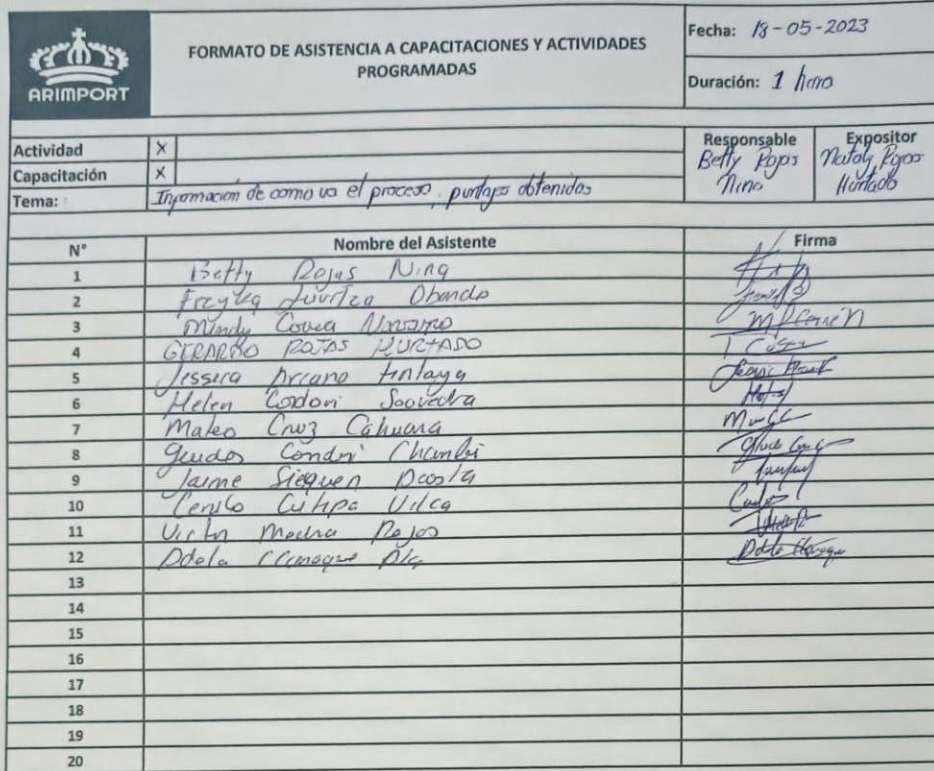 ARIMPORT
FORMATO DE ASISTENCIA A CAPACITACIONES Y ACTIVIDADES
PROGRAMADAS
Fecha: 18-05-2023
Duración: 1 hora
Actividad X
Capacitación X
Tema: Información de como va el proceso, puntajes obtenidos
Responsable
Betty Rojas
Nina
Expositor
Nataly Rojas
Hurtado
N° Nombre del Asistente Firma
1 Betty Rojas Nina
2 Obando
3 Mindy Navarro
4 GERARDO ROJAS HURTADO
5 Jessica Arcano
6 Helen Condori Saavedra
7 Mateo Cruz Cahuana
8 Condori Chambi
9 Jaime Siequen Acosta
10 Cutipa Vilca
11 Victor Rojas
12
13
14
15
16
17
18
19
20